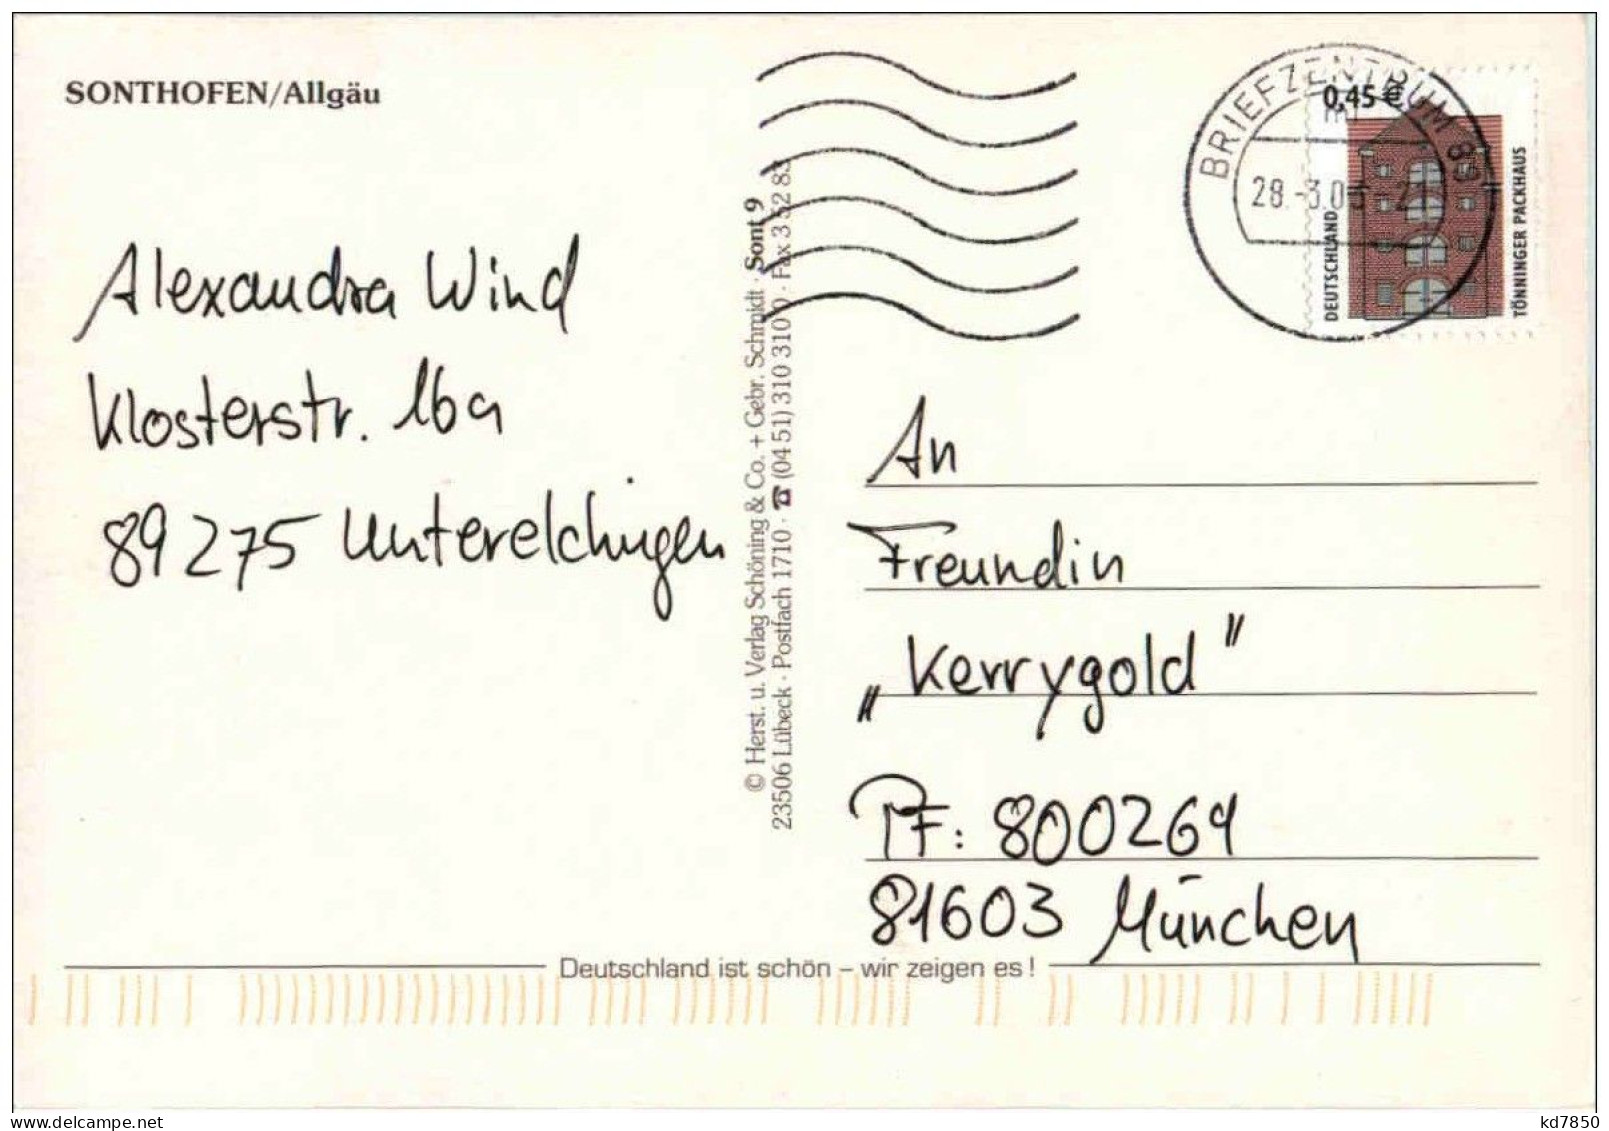 SONTHOFEN/Allgäu
Alexandra Wind
Klosterstr. 16a
89275 Unterelchingen
© Herst. u. Verlag Schöning & Co. + Gebr. Schmidt · Sont 9
23506 Lübeck · Postfach 1710 · ☎ (04 51) 310 310 · Fax 3 52 83
BRIEFZENTRUM 89
28.-3.0
0,45 €
DEUTSCHLAND
TÖNNINGER PACKHAUS
An
Freundin
„Kerrygold"
PF: 800269
81603 München
Deutschland ist schön – wir zeigen es!
kd7850